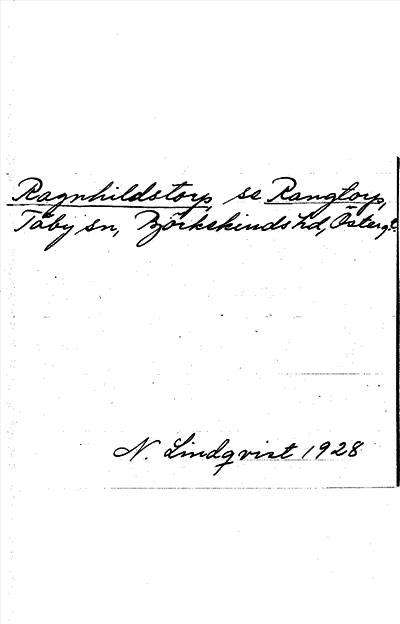 Ragnhildstorp, se Rangtorp,
Täby sn, Björkekinds hd, Österg.
N. Lindqvist 1928